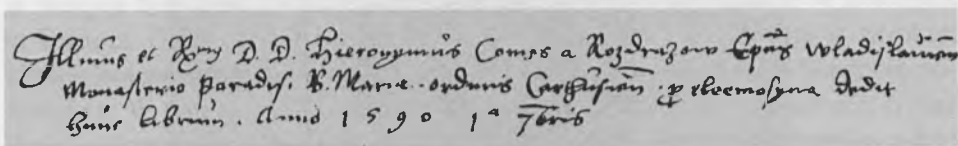 Illmus et Rxmus D. D. Hieronymus Comes a Rozdrazow Epus Wladislauien
Monasterio Paradisi B. Mariæ ordinis Carthusien pro eleemosyna dedit
hunc librum. Anno 1590 1ª 7bris